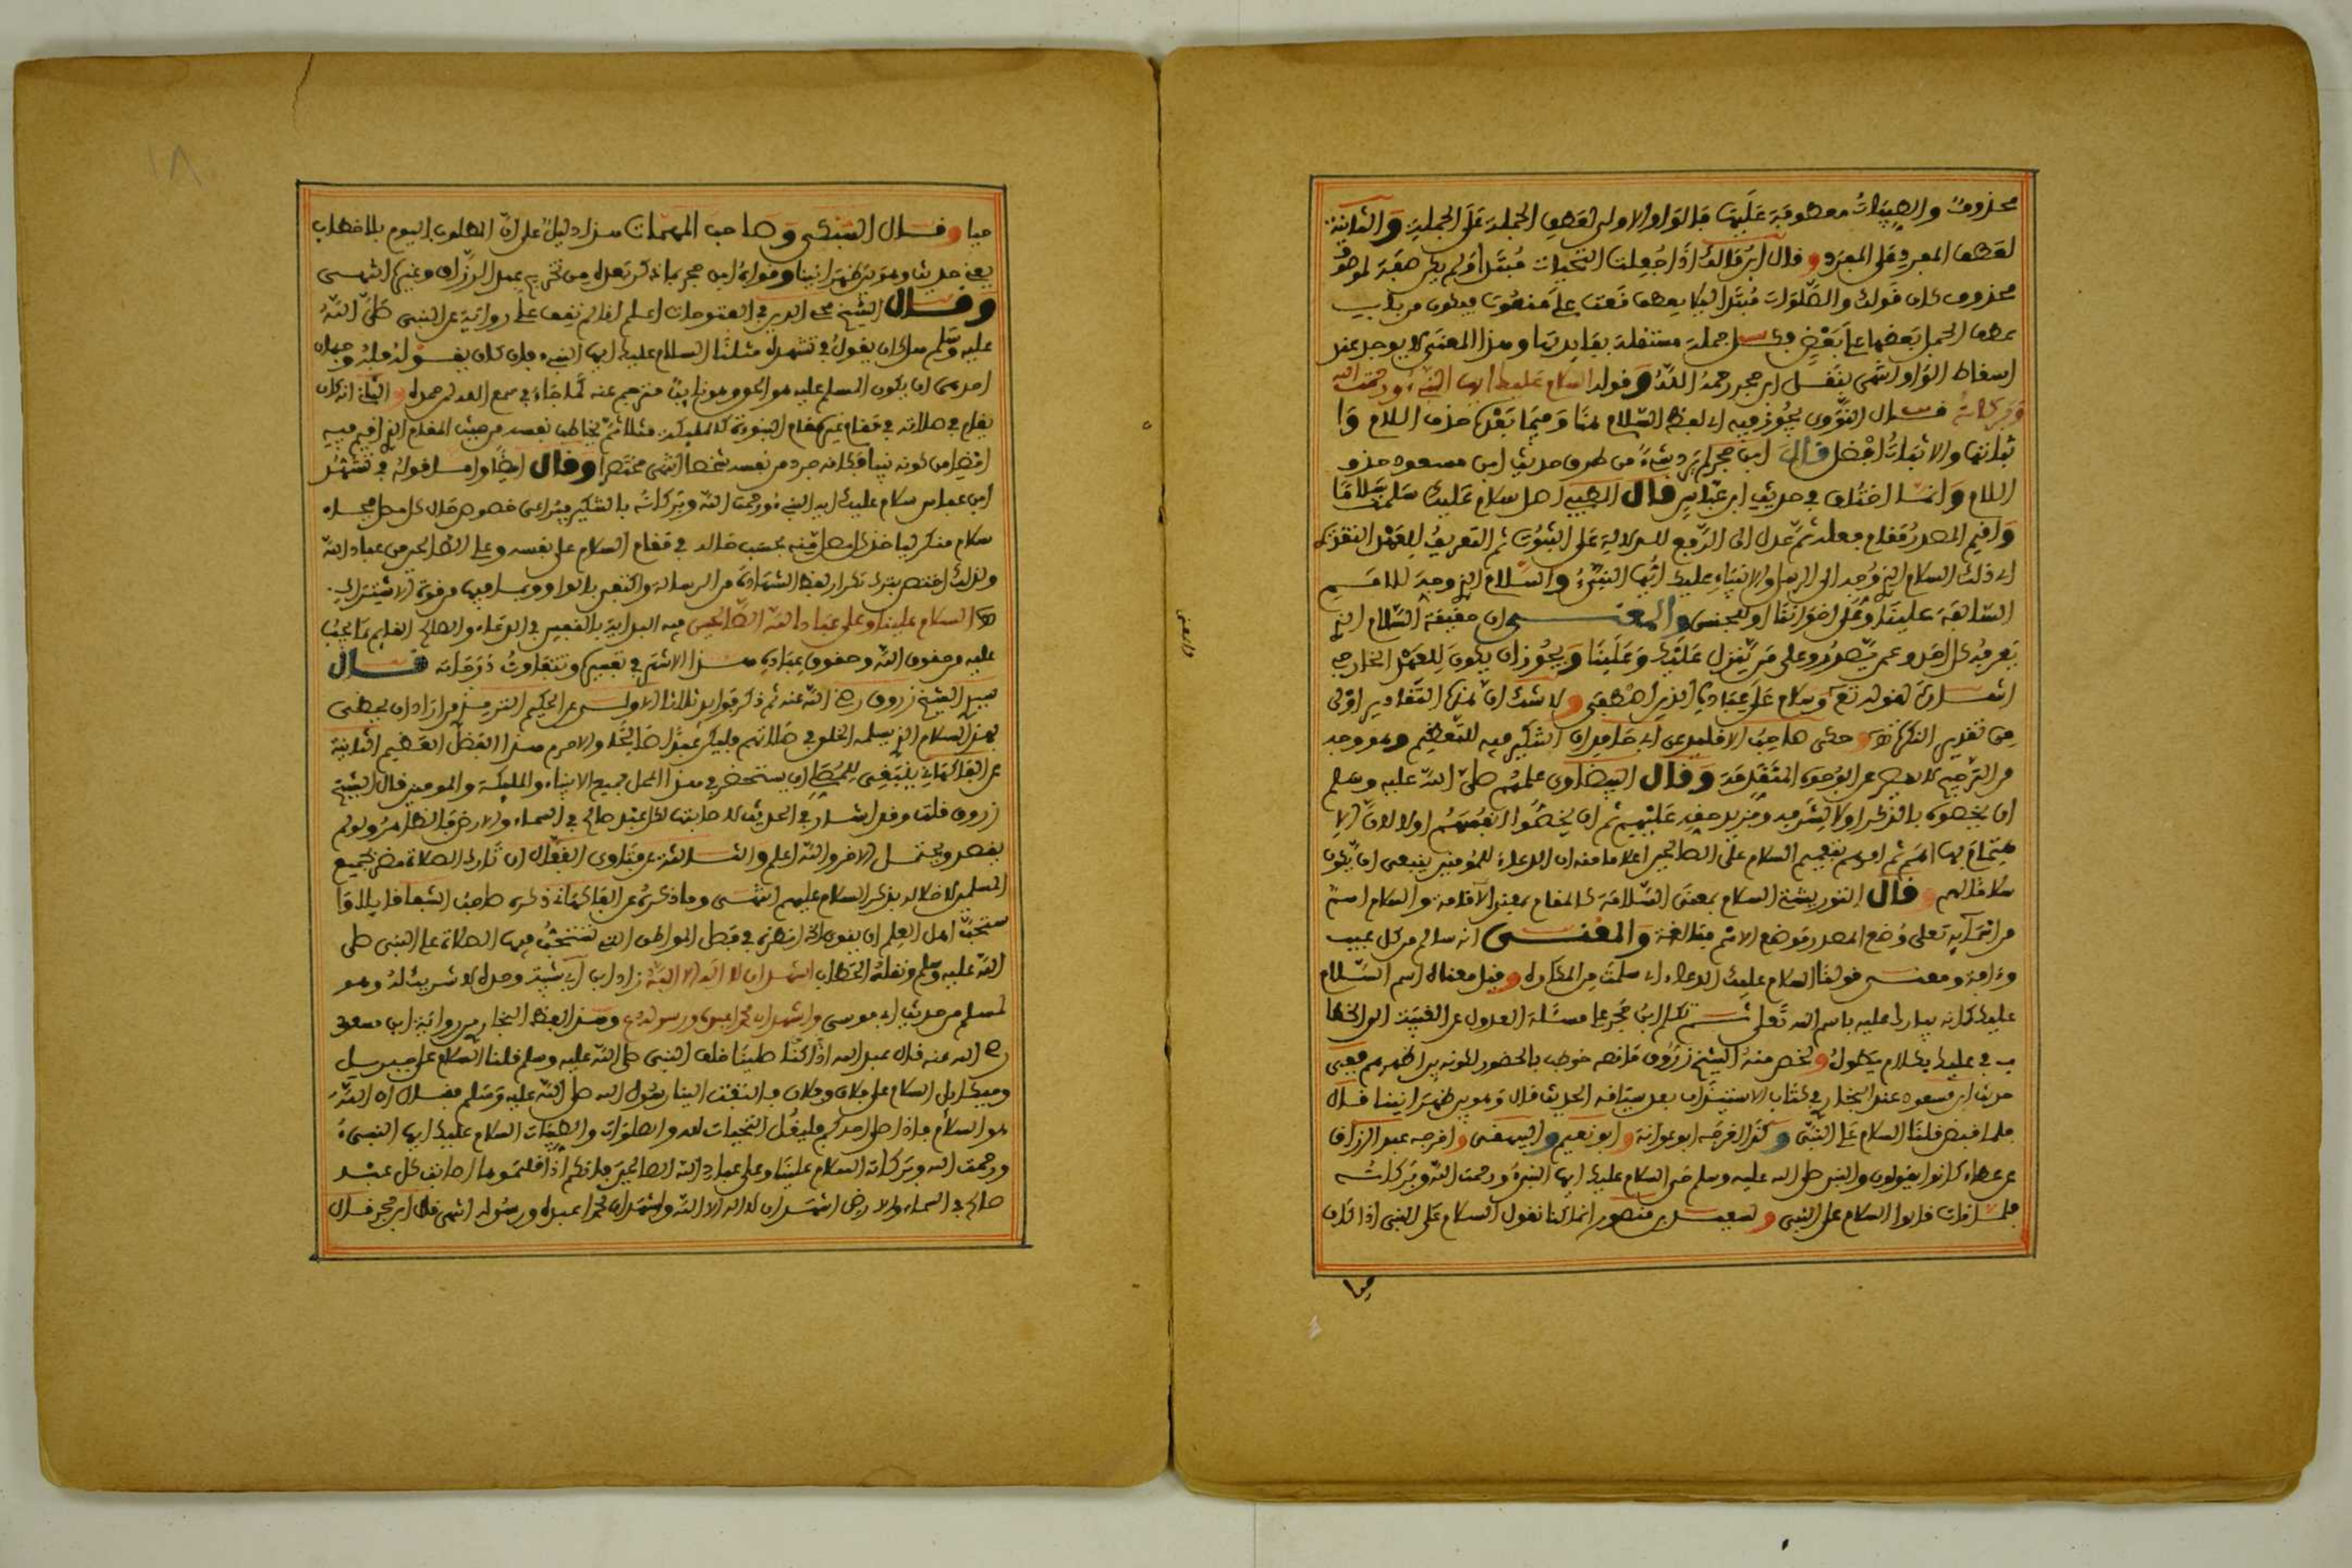 محذوف والطيبات معطوفة عليها فالواو الاولى لعطف الجملة على الجملة والثانية
لعطف المفرد على المفرد وقال ابن مالك اذا جعلت التحيات مبتدأ ولم يكن صفة لموصوف
محذوف كان قولك والصلوات مبتدأ ليلا يعطف نعت على منعوت فيكون من باب
عطف الجمل بعضها على بعض وكل جملة مستقلة بفايدتها وهذا المعنى لا يوجد عند
اسقاط الواو انتهى بنقل ابن حجر رحمه الله وقوله السلام عليك ايها النبيء ورحمت الله
وبركاته قال النووي يجوز فيه اي لفظ السلام هنا وفيما بعدها حذف اللام وا
ثباتها والاثبات افضل قال ابن حجر لم يرد شيء من طرق حديث ابن مسعود حذف
اللام وانما اختلف في حديث ابن عباس قال الطيبي اصل سلام عليك سلمت سلاما
واقيم المصدر مقام فعله ثم عدل الى الرفع للدلالة على الثبوت ثم التعريف للعهد التقديري
اي ذلك السلام الذي وجه الى الرسل والانبياء عليك ايها النبيء والسلام الذي وجه للامم
السالفة علينا وعلى اخواننا او للجنس والمعنى ان حقيقة السلام الذي
يعرفه كل احد وعمن يصدر وعلى من ينزل عليك وعلينا ويجوز ان يكون للعهد الخارجي
اشارة لقوله تع وسلام على عباده الذين اصطفى ولا شك ان هذه التقادير اولى
من تقدير النكرة وحكى صاحب الاقليد عن ابي حامد ان التنكير فيه للتعظيم وهو وجه
من الترجيح لا يقصر عن الوجوه المتقدمة وقال البيضاوي علمهم صلى الله عليه وسلم
ان يخصوه بالذكر اولا لشرفه ومزيد حقه عليهم ثم ان يخصوا انفسهم اولا لان الا
هتمام بها اهم ثم امرهم بتعميم السلام على الصالحين اعلاما منه ان الدعاء للمومنين ينبغي ان يكون
شاملا لهم وقال التوربشتي السلام بمعنى السلامة كالمقام بمعنى الاقامة والسلام اسم
من اسمايه تعلى وضع المصدر موضع الاسم مبالغة والمعنى انه سالم من كل عيب
وءافة ومعنى قولنا السلام عليك الدعاء اي سلمت من المكاره وقيل معناه اسم السلام
عليك كانه يبارك عليه باسم الله تعلى ثم تكلم ابن حجر على مسئلة العدول عن الغيبة الى الخطا
ب في عليك بكلام يطول ولخص منه الشيخ زروق فانه خوطب بالحضور لكونه بين اظهرهم ففي
حديث ابن مسعود عند البخاري في كتاب الاستيذان بعد سياقه الحديث قال وهو بين ظهرانينا قال
فلما قبض قلنا السلام على النبي وكذا اخرجه ابو عوانة وابو نعيم والبيهقي واخرجه عبد الرزاق
عن عطاء كانوا يقولون والنبي صلى الله عليه وسلم حي السلام عليك ايها النبيء ورحمت الله وبركاته
فلما مات قالوا السلام على النبي ولسعيد بن منصور انما كنا نقول السلام على النبي اذا كان
حيا
والمعنى
١٨
حيا وقال السبكي وصاحب المهمات هذا دليل على ان المطلوب اليوم بلا خطاب
يعني حديث وهو بين ظهرانينا وقواه ابن حجر بما ذكر بعده من تخريج عبد الرزاق وغيره انتهى
وقال الشيخ محي الدين في الفتوحات اعلم انا لم نقف على رواية عن النبي صلى الله
عليه وسلم هل كان يقول في تشهده مثلنا السلام عليك ايها النبيء فان كان يقول فله وجهان
احدهما ان يكون المسلم عليه هو الحق وهو نايب مترجم عنه كما جاء في سمع الله لمن حمده والثاني انه كان
يقام في صلاته في مقام غير مقام النبوءة كالملكية مثلا ثم يخاطب نفسه من حيث المقام الذي اقيم فيه
ايضا من كونه نبيا وكانه جرد من نفسه شخصا انتهى مختصرا وقال ايضا واما قوله في تشهد
ابن عباس سلام عليك ايها النبيء ورحمت الله وبركاته بالتنكير فيراعي خصوص حال كل مصل فجاء
سلام منكر لياخذ كل مصل منه بحسب حاله في مقام السلام على نفسه وعلى الصالحين من عباد الله
ولذلك اختص بترك تكرار لفظ الشهادة من الرسالة واكتفى بالواو وبما فيها من قوة الاشتراك.
السلام علينا وعلى عباد الله الصالحين فيه البداية بالنفس في الدعاء والصالح القايم بما يجب
عليه من حقوق الله وحقوق عباده هذا الاشهر في تفسيره وتتفاوت درجاته قال
سيدي الشيخ زروق رضي الله عنه ثم ذكر فوايد ثلاثا الاولى عن الحكيم الترمذي من اراد ان يحظى
بهذا السلام الذي يسلمه الخلق في صلاتهم فليكن عبدا صالحا والا حرم هذا الفضل العظيم الثانية
عن الفاكهاني ينبغي للمصلي ان يستحضر في هذا المحل جميع الانبياء والمليكة والمومنين قال الشيخ
زروق قلت وقد اشار في الحديث لاصابتها كل عبد صالح في السماء والارض فالظاهر ولو لم
يقصد ويحتمل الاخر والله اعلم والثالثة عن فتاوى القفال ان تارك الصلاة مضر بجميع
المسلمين لاخلاله بذكر السلام عليهم انتهى وما ذكره عن الفاكهاني ذكره صاحب الشفا قايلا وا
ستحب اهل العلم ان ينوي الخ انظره في فصل المواطن التي تستحب فيها الصلاة على النبي صلى
الله عليه وسلم ونقله الحطاب اشهد ان لا اله الا الله زاد ابن ابي شيبة وحده لا شريك له وهو
لمسلم من حديث ابي موسى واشهد ان محمدا عبده ورسوله وهذا لفظ البخاري من رواية ابن مسعود
رضي الله عنه قال عبد الله اذا كنا صلينا خلف النبي صلى الله عليه وسلم قلنا السلام على جبريل
وميكايل السلام على فلان وفلان فالتفت الينا رسول الله صلى الله عليه وسلم فقال ان الله
هو السلام فاذا صلى احدكم فليقل التحيات لله والصلوات والطيبات السلام عليك ايها النبيء
ورحمت الله وبركاته السلام علينا وعلى عباد الله الصالحين فانكم اذا قلتموها اصابت كل عبد
صالح في السماء والارض اشهد ان لا اله الا الله واشهد ان محمدا عبده ورسوله انتهى قال ابن حجر قال